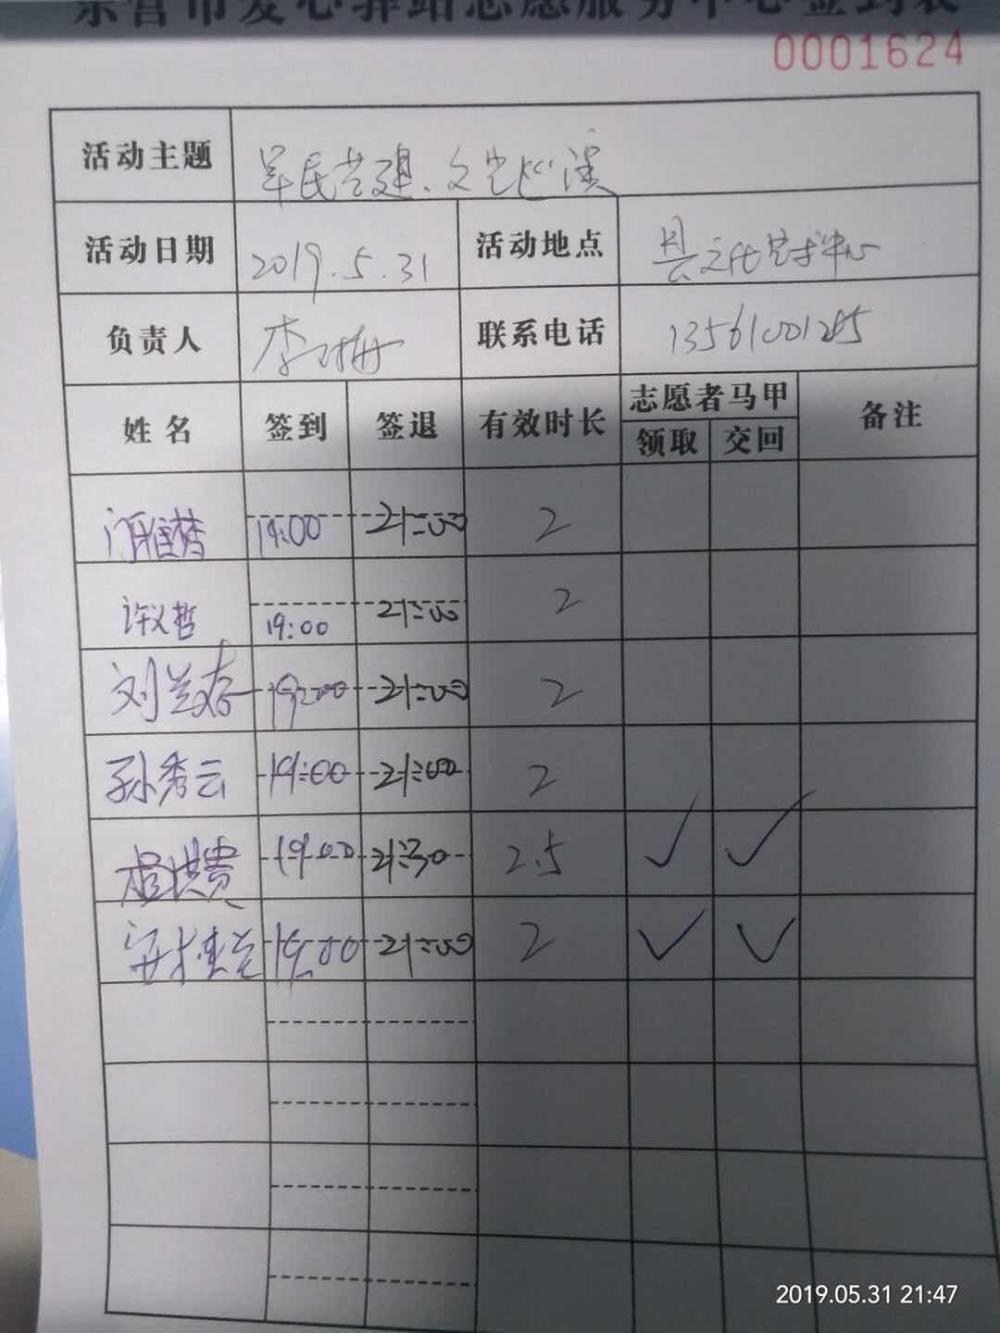 东营市爱心驿站志愿服务中心签到表
0001624
活动主题 军民共建、文艺巡演
活动日期 2019.5.31 活动地点 县文化艺术中心
负责人 李 梅 联系电话
姓名 签到 签退 有效时长 志愿者马甲 备注
领取 交回
门雅梦 19:00 21:00 2
许议哲 19:00 21:00 2
刘兰春 19:00 21:00 2
孙秀云 19:00 21:00 2
19:00 21:30 2.5 ✓ ✓
19:00 21:00 2 ✓ ✓
2019.05.31 21:47